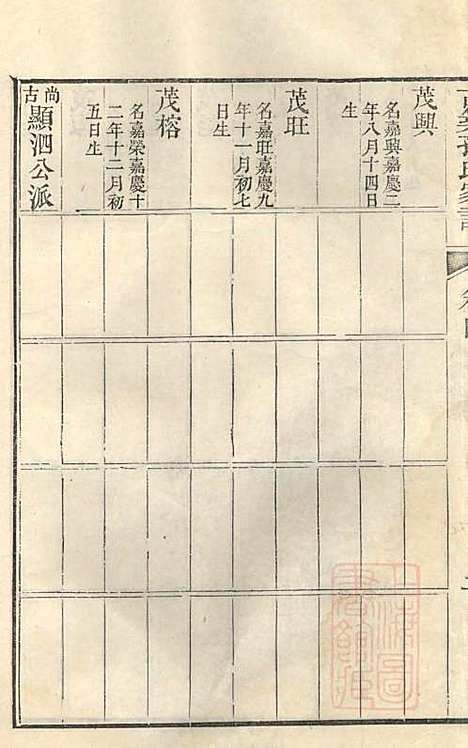 茂興
名嘉興嘉慶二
年八月十四日
生
茂旺
名嘉旺嘉慶九
年十一月初七
日生
茂榕
名嘉榮嘉慶十
二年十二月初
五日生
尚古
顯泗公派